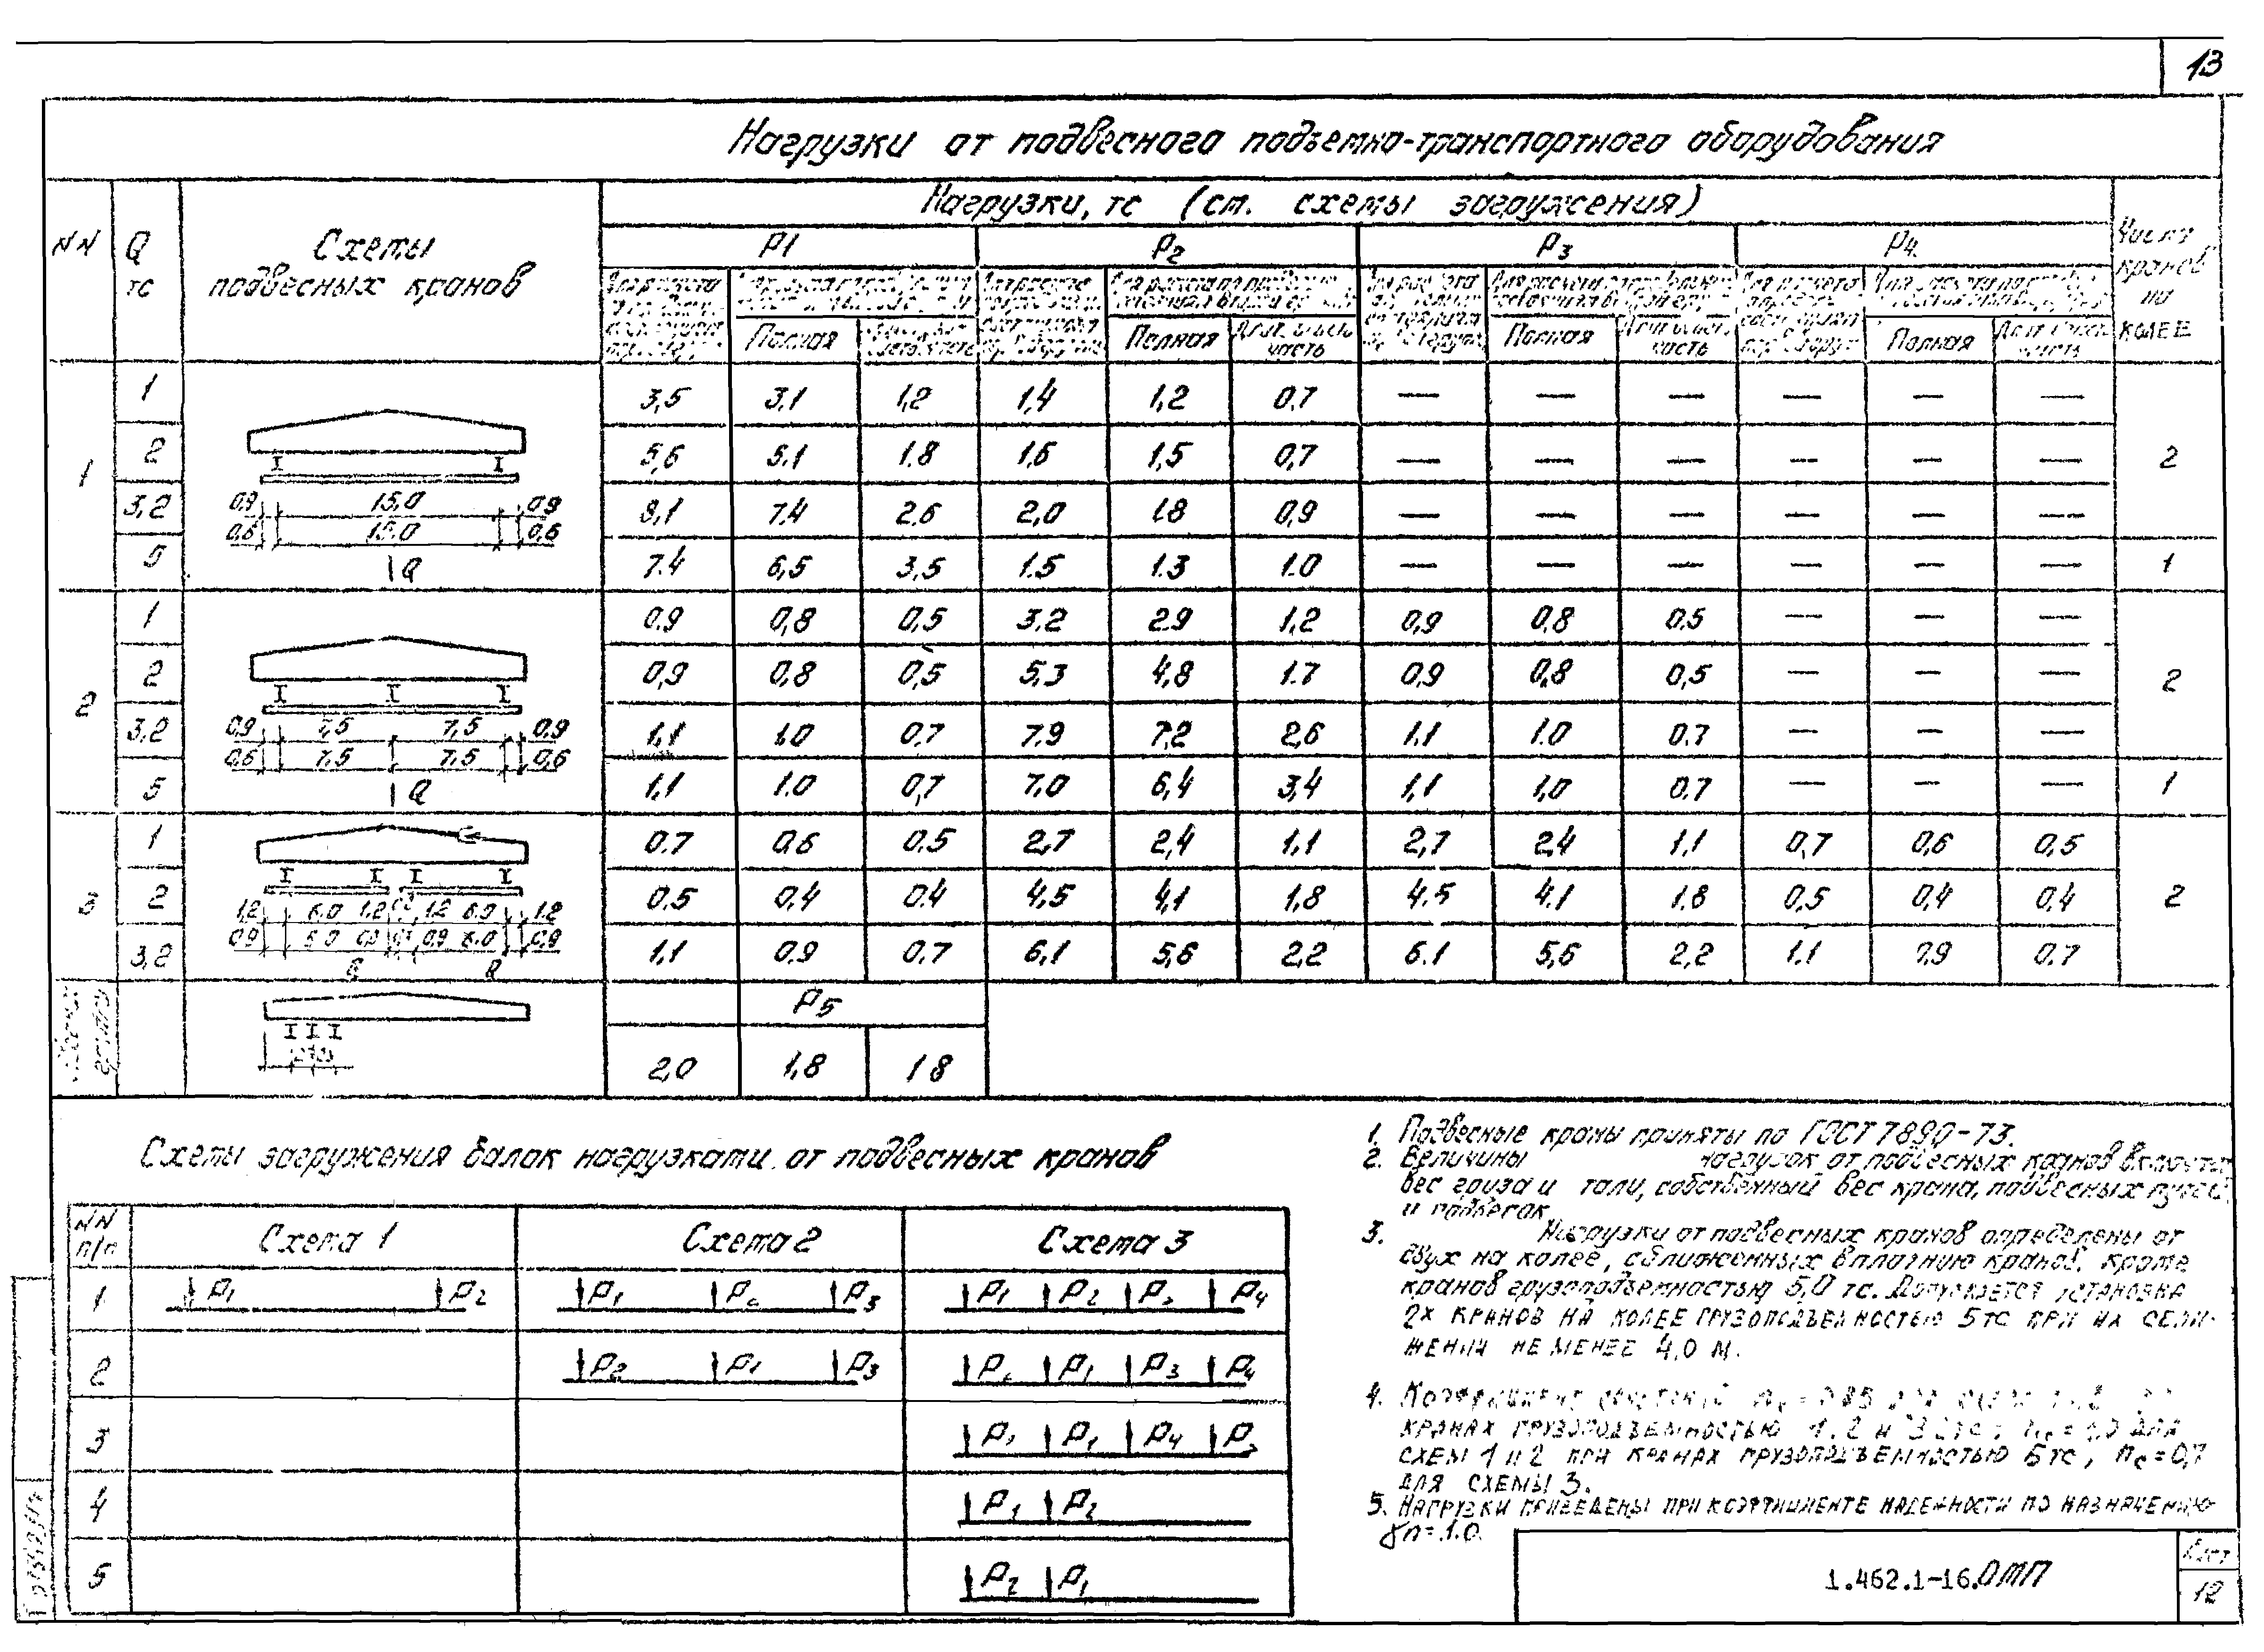 13
Нагрузки от подвесного подъемно-транспортного оборудования
NN Q тс Схемы подвесных кранов Нагрузки, тс (см. схемы загружения) Число кранов на колее
P1 P2 P3 P4
Полная Полная часть Полная часть Полная часть
1
1 3,5 3,1 1,2 1,4 1,2 0,7 — — — — — — 2
2 5,6 5.1 1.8 1,6 1,5 0,7 — — — — — —
3,2 8,1 7.4 2.6 2,0 1.8 0,9 — — — — — —
5 7.4 6,5 3,5 1.5 1.3 1.0 — — — — — — 1
0,9 15,0 0,9
0,6 15.0 0,6
Q
2
1 0.9 0,8 0,5 3.2 2.9 1,2 0,9 0.8 0.5 — — — 2
2 0,9 0,8 0,5 5,3 4,8 1.7 0,9 0,8 0,5 — — —
3,2 1,1 1.0 0.7 7.9 7,2 2,6 1.1 1.0 0.7 — — —
5 1,1 1.0 0,7 7,0 6,4 3,4 1,1 1,0 0.7 — — — 1
0,9 7,5 7,5 0,9
0,6 7.5 7.5 0,6
Q
3
1 0.7 0,6 0.5 2,7 2,4 1,1 2,7 2,4 1,1 0,7 0,6 0,5 2
2 0.5 0,4 0.4 4,5 4,1 1,8 4.5 4.1 1.8 0,5 0,4 0,4
3,2 1,1 0.9 0,7 6,1 5,6 2,2 6.1 5,6 2,2 1.1 0,9 0.7
1,2 6.0 1.2 1.2 6.0 1.2
0,9 6.0 0,9 6.0 0,9
Q Q
P5
2,0 1,8 1 8
Схемы загружения балок нагрузками от подвесных кранов
NN п/п Схема 1 Схема 2 Схема 3
1 P1 P2 P1 P2 P3 P1 P2 P3 P4
2 P2 P1 P3 P2 P1 P3 P4
3 P2 P1 P4 P3
4 P1 P2
5 P2 P1
1. Подвесные краны приняты по ГОСТ 7890-73.
2. Величины нагрузок от подвесных кранов включают
вес груза и тали, собственный вес крана, подвесных путей
и подвесок
3. Нагрузки от подвесных кранов определены от
двух на колее, сближенных вплотную кранов, кроме
кранов грузоподъемностью 5,0 тс. Допускается установка
2х кранов на колее грузоподъемностью 5 тс при их сбли-
жении не менее 4.0 м.
4. Коэффициент сочетаний 0,85
кранах грузоподъемностью 1, 2 и 3,2 тс; для
схем 1 и 2 при кранах грузоподъемностью 5 тс, nс=0,7
для схемы 3.
5. Нагрузки приведены при коэффициенте надежности по назначению
γn=1.0.
1.462.1-16.ОМП
Лист
12